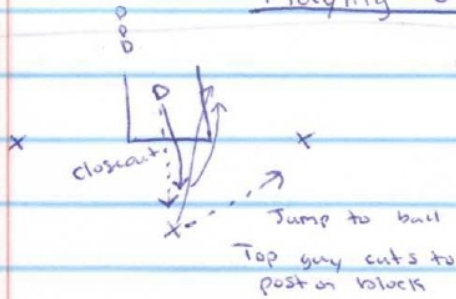 D
D
D
D
X
X
closeout
X
Jump to ball
Top guy cuts to
post on block